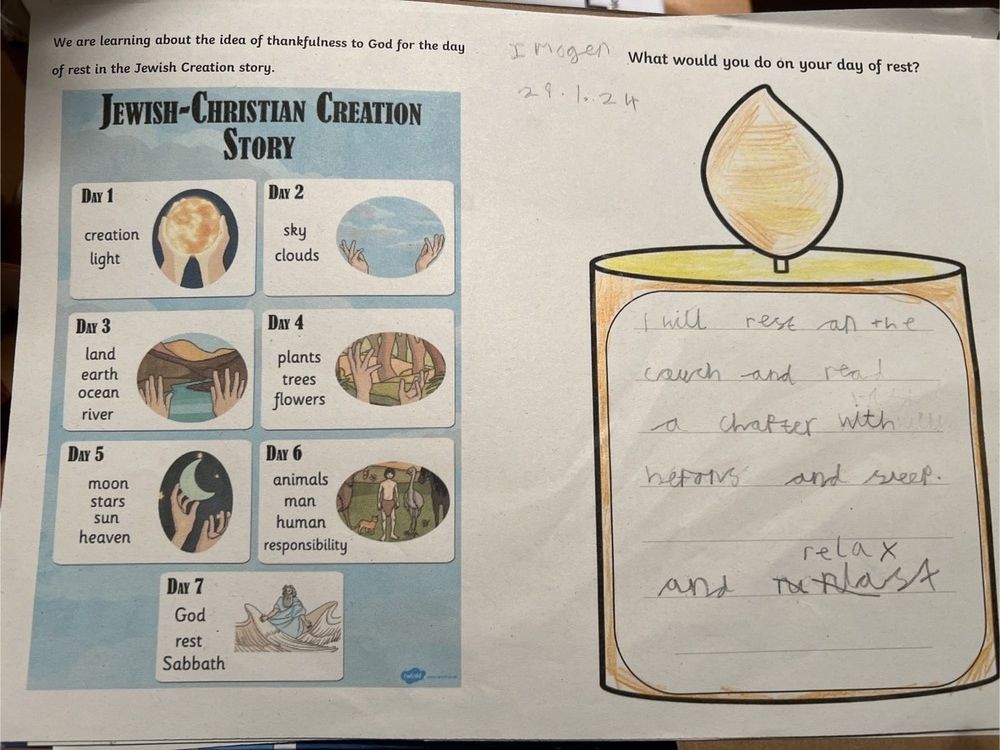 We are learning about the idea of thankfulness to God for the day
of rest in the Jewish Creation story.
JEWISH-CHRISTIAN CREATION
STORY
DAY 1
creation
light
DAY 2
sky
clouds
DAY 3
land
earth
ocean
river
DAY 4
plants
trees
flowers
DAY 5
moon
stars
sun
heaven
DAY 6
animals
man
human
responsibility
DAY 7
God
rest
Sabbath
twinkl
Imogen
29.1.24
What would you do on your day of rest?
I will rest on the
couch and read
a chapter with
and sleep.
relax
and